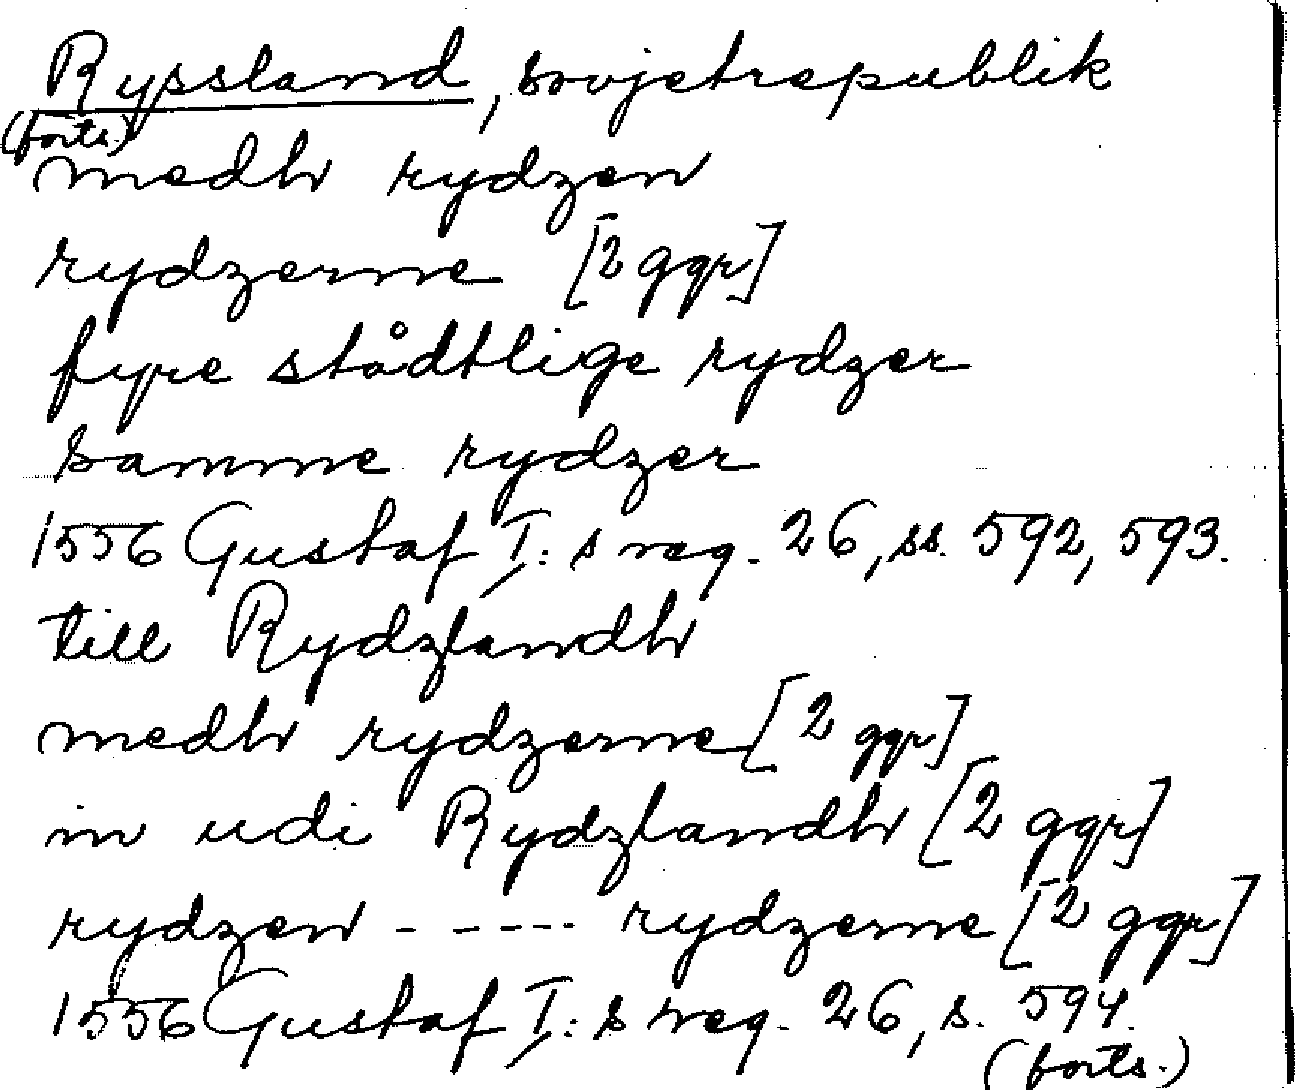 Ryssland, sovjetrepublik
(forts.)
medh rydzen
rydzerne [2 ggr]
fyre stådtlige rydzer
samme rydzer
1556 Gustaf I:s reg. 26, ss. 592, 593.
till Rydzlandh
medh rydzerne [2 ggr]
in udi Rydzlandh [2 ggr]
rydzen - - - - - rydzerne [2 ggr]
1556 Gustaf I:s reg. 26, s. 594.
(forts.)